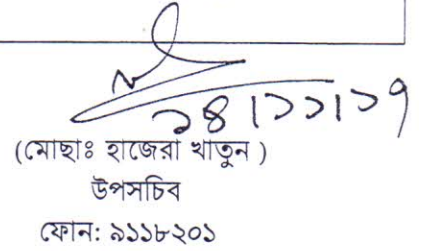 ১৪|১১|১৭
(মোছাঃ হাজেরা খাতুন )
উপসচিব
ফোন: ৯১১৮২০১